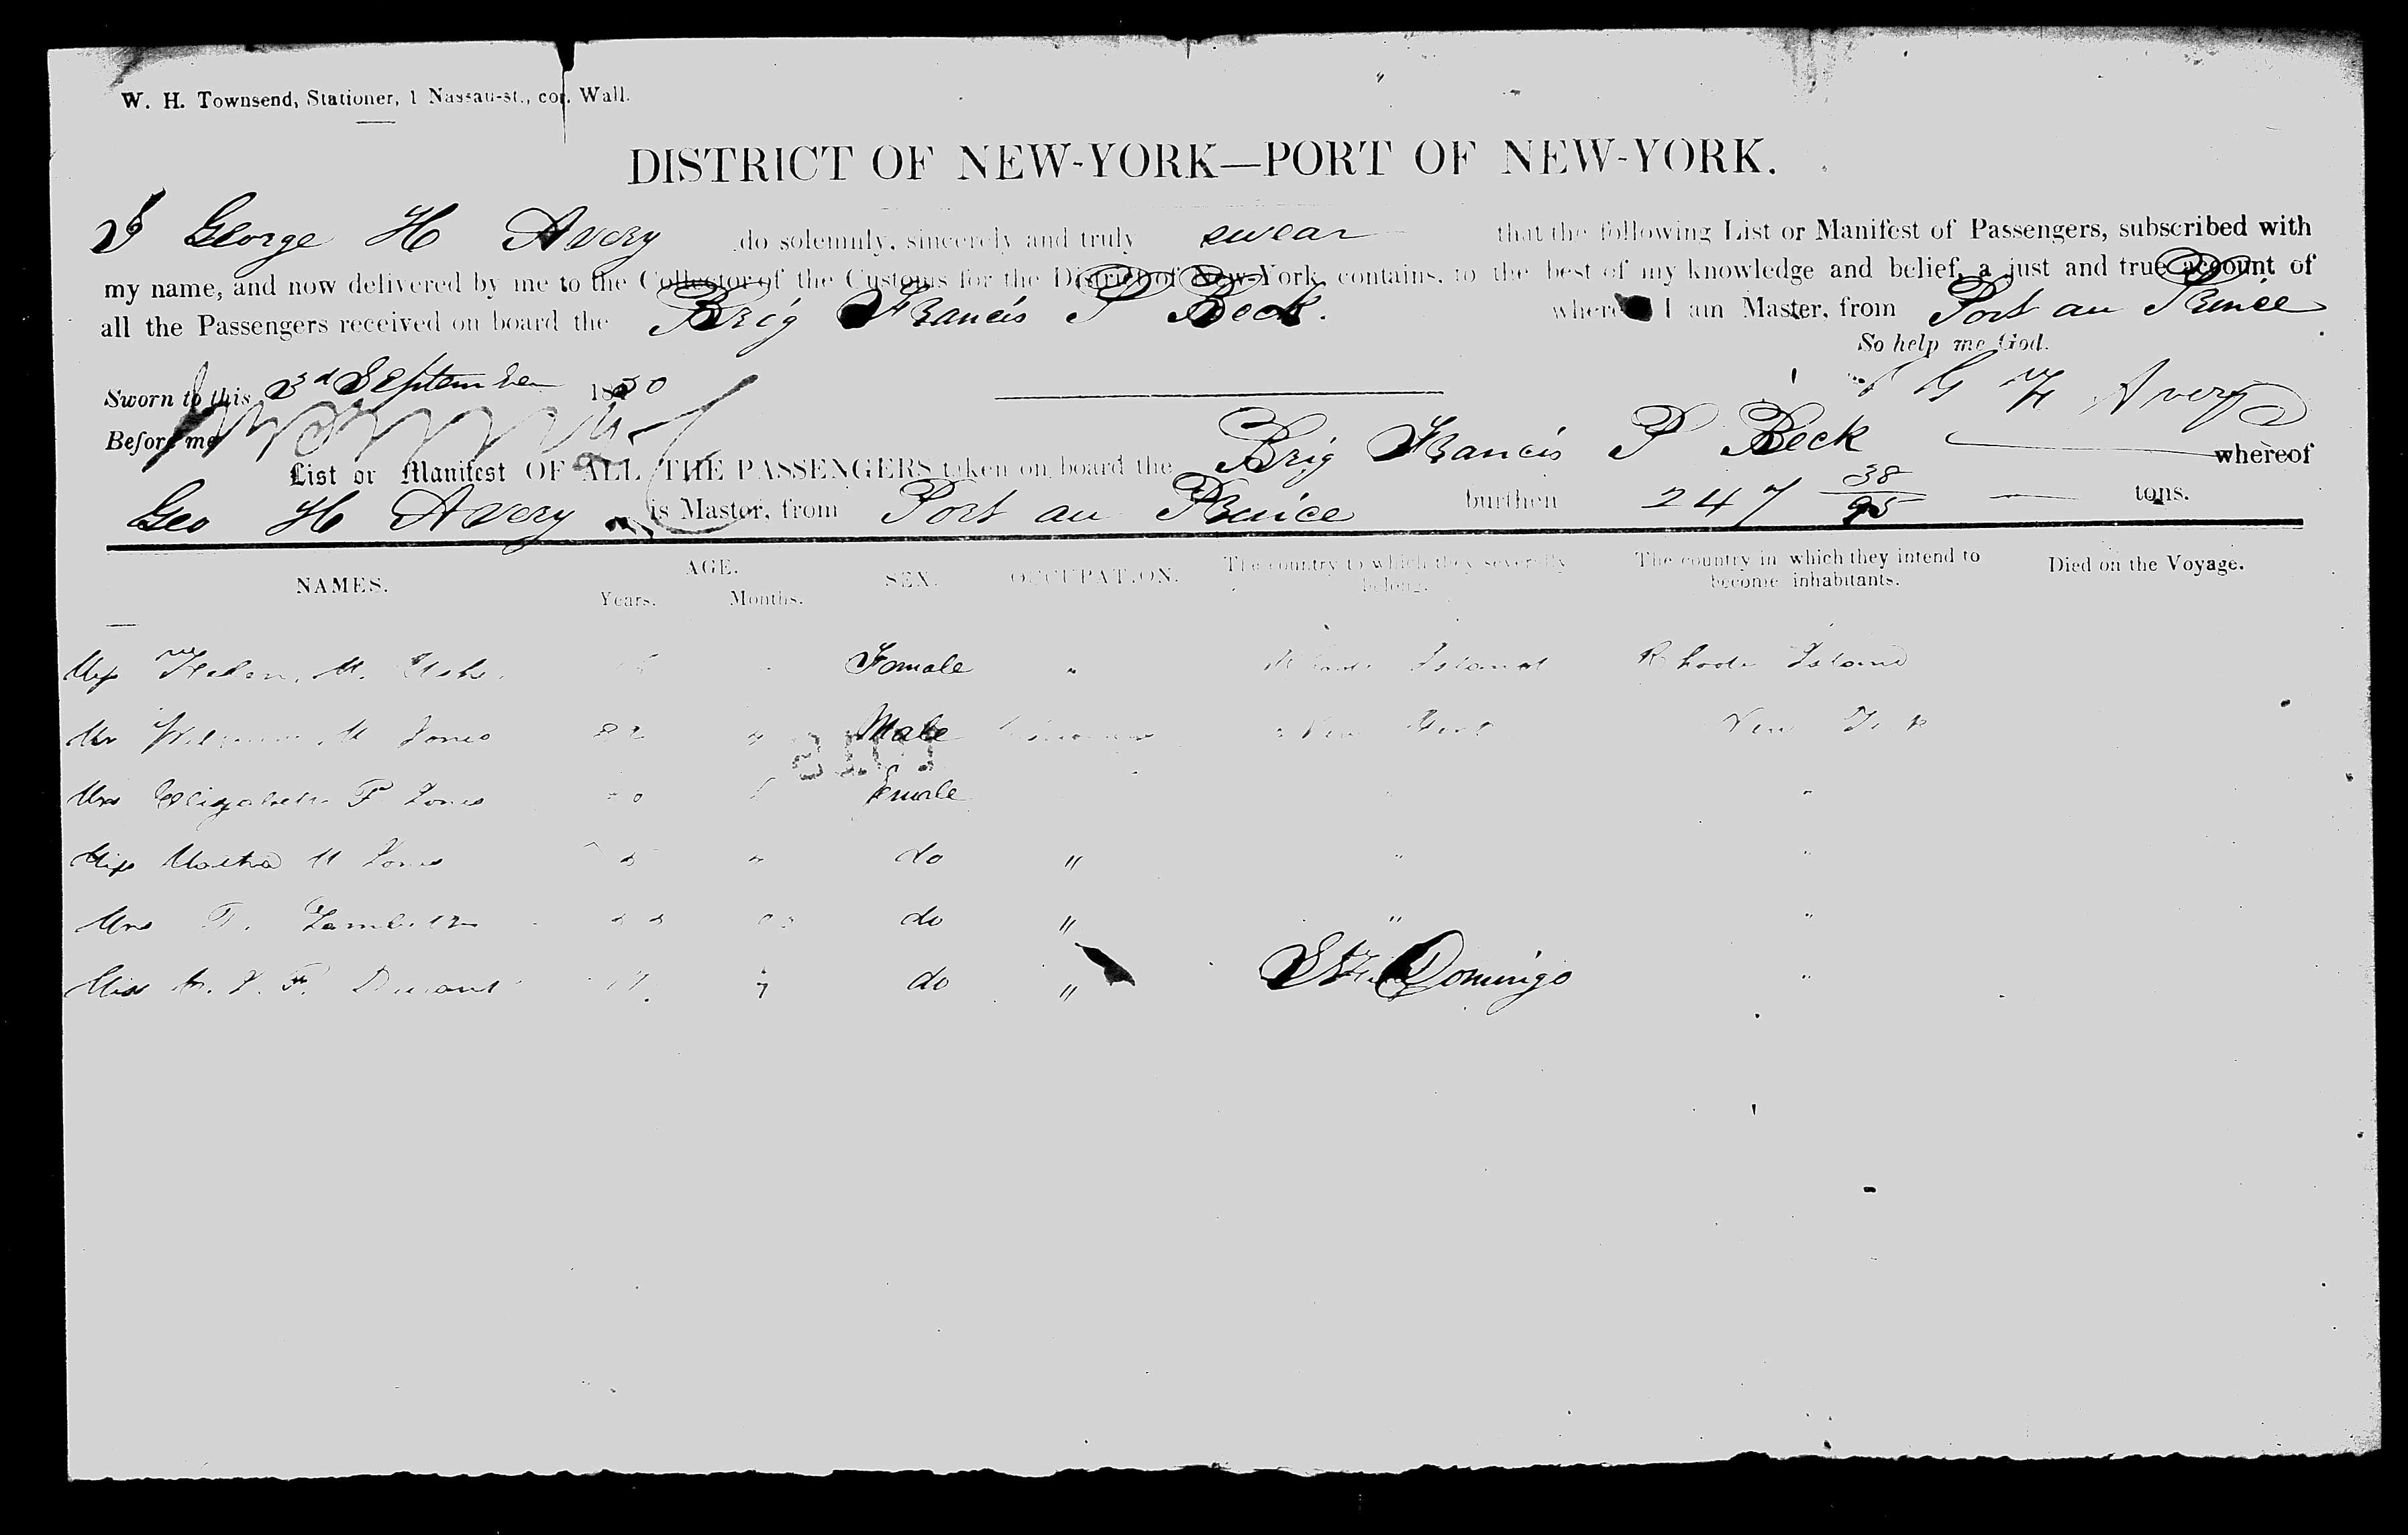 W. H. Townsend, Stationer, 1 Nassau-st., cor. Wall.
DISTRICT OF NEW-YORK—PORT OF NEW-YORK.
I George H Avery do solemnly, sincerely and truly swear that the following List or Manifest of Passengers, subscribed with
my name, and now delivered by me to the Collector of the Customs for the District of New-York, contains, to the best of my knowledge and belief, a just and true account of
all the Passengers received on board the Brig Francis P Beck. whereof I am Master, from Port au Prince
So help me God.
Sworn to this 3d September 1850
G H Avery
Before me
List or Manifest OF ALL THE PASSENGERS taken on board the Brig Francis P Beck whereof
Geo H Avery is Master, from Port au Prince burthen 247 38/95 tons.
NAMES. AGE. Years. Months. SEX. OCCUPATION. The country to which they severally belong. The country in which they intend to become inhabitants. Died on the Voyage.
Helen M. Female " Rhode Island Rhode Island
Mr William M Jones " Male New York New York
Mrs Elizabeth P Jones Female "
Miss Martha M Jones " do " " "
Mrs do " " "
Miss F. 7 do " St Domingo "